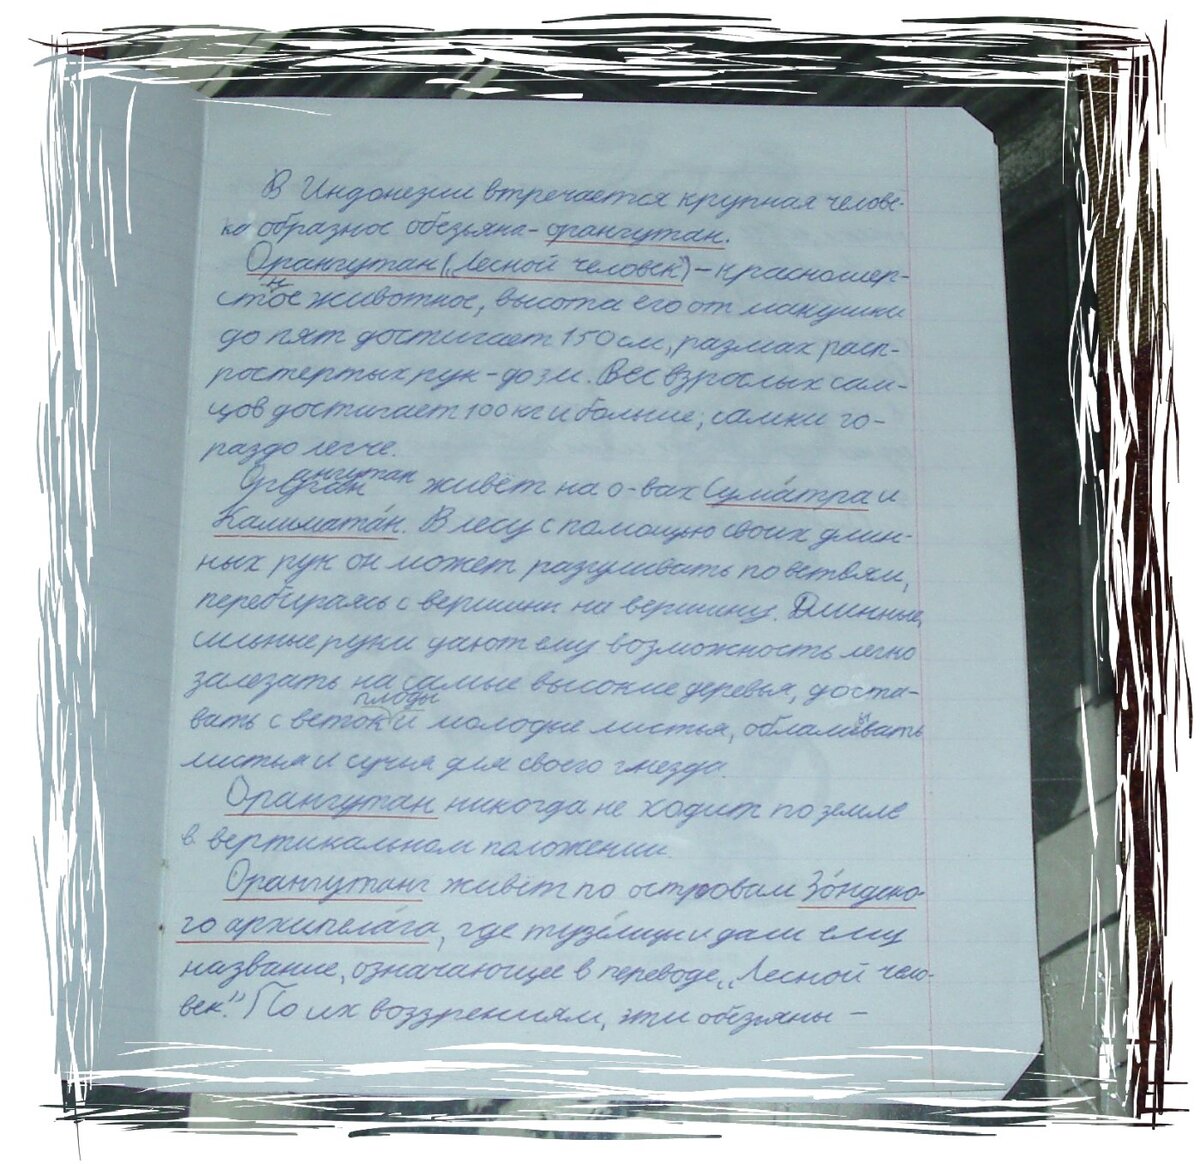 В Индонезии втречается крупная челове-
ка образное обезьяна - орангутан.
Орангутан („Лесной человек") - красношер-
стное животное, высота его от макушки
до пят достигает 150 см, размах расп-
ростертых рук - до 3 м. Вес взрослых сам-
цов достигает 100 кг и больше; самки го-
раздо легче.
Орангутан живёт на о-вах Сума́тра и
Калимата́н. В лесу с помощью своих длин-
ных рук он может разгуливать по ветвям,
перебираясь с вершины на вершину. Длинные,
сильные руки дают ему возможность легко
залезать на самые высокие деревья, доста-
вать с веток плоды и молодые листья, обламывать
листья и сучья для своего гнезда.
Орангутан никогда не ходит по земле
в вертикальном положении.
Орангутанг живёт по островам Зо́ндско-
го архипела́га, где тузе́мцы и дали ему
название, означающее в переводе „Лесной чело-
век." По их воззрениям, эти обезьяны -